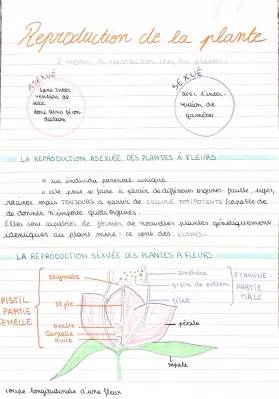 Reproduction de la plante
2 modes de reproduction chez les plantes:
ASEXUÉ
sans inter-
vention de
sexe
donc sans fécon
dation
SEXUÉ
avec l'inter-
vention de
gamètes
LA REPRODUCTION ASÉXUÉE DES PLANTES À FLEURS
o un individu parental unique
o elle peut se faire à partir de différents organes: feuille, tiges,
racines mais TOUJOURS à partir de CELLULE TOTIPOTENTE (capable de
de donner n'importe quels organes.
Elles sont capables de former de nouvelles plantes génétiquement
identiques au plant mère: ce sont des CLONES.
LA REPRODUCTION SÉXUÉE DES PLANTES À FLEURS
PISTIL
PARTIE
FEMELLE
stigmate
style
ovaire
Carpelle
ovule
anthère
grain de pollen
filet
ÉTAMINE
PARTIE
MÂLE
pétale
sépale
coupe longitudinale d'une fleur